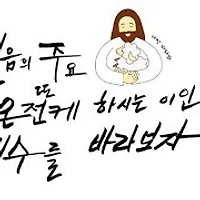 음의 주요
또
온전케 하시는 이인
예수를 바라보자